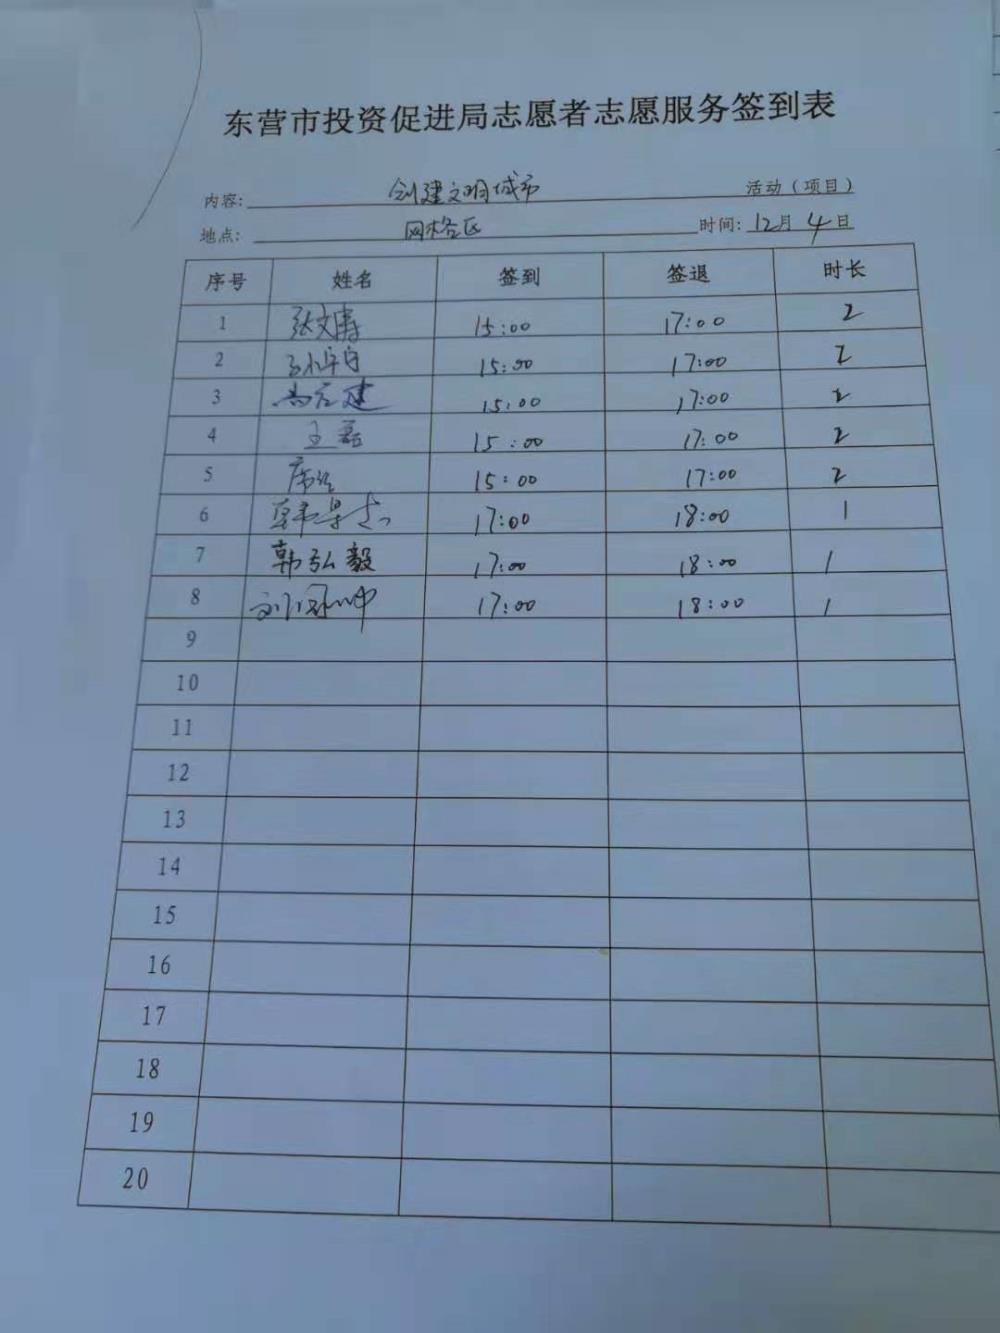 东营市投资促进局志愿者志愿服务签到表
内容: 创建文明城市 活动（项目）
地点: 网格区 时间: 12月4日
序号 姓名 签到 签退 时长
1 张文涛 15:00 17:00 2
2 15:00 17:00 2
3 15:00 17:00 2
4 王磊 15:00 17:00 2
5 15:00 17:00 2
6 17:00 18:00 1
7 韩弘毅 17:00 18:00 1
8 17:00 18:00 1
9
10
11
12
13
14
15
16
17
18
19
20